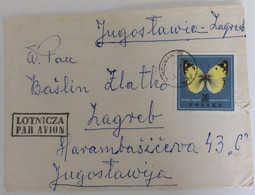 Jugosławia-Zagreb
W. Pan
Bašlin Zlatko
Zagreb
LOTNICZA
PAR AVION
Harambašičewa 43 "C"
Jugosławija
POLSKA